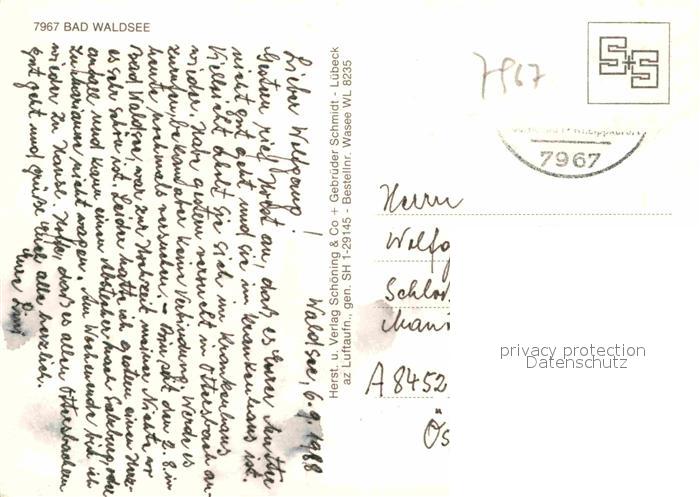 7967 BAD WALDSEE
Waldsee, 6.9.1988
Lieber Wolfgang!
Gestern rief Horst an, daß es Eurer Mutter
nicht gut geht und sie im Krankenhaus ist.
Vielleicht erholt sie sich im Krankenhaus
wieder. Habe gestern versucht in Ottersbach an-
zurufen, bekam aber keine Verbindung. Werde es
heute nochmals versuchen. – Bin seit den 2.8. in
Bad Waldsee, war zur Hochzeit meiner Nichte wo
es sehr schön ist. Leider hatte ich gestern einen Herz-
anfall und kann einen Abstecher nach Salzburg oder
zu Marianne nicht wagen. Am Wochenende bin ich
wieder zu Hause. Hoffe, daß es allen Ottersbachern
gut geht und grüße Euch alle herzlich.
Eure
Herst. u. Verlag Schöning & Co + Gebrüder Schmidt - Lübeck
az Luftaufn., gen. SH 1-29145 - Bestellnr. Wasee WL 8235
7967
S+S
7967
Herrn
Wolfg
Schloß
A 8452
Ös
privacy protection
Datenschutz